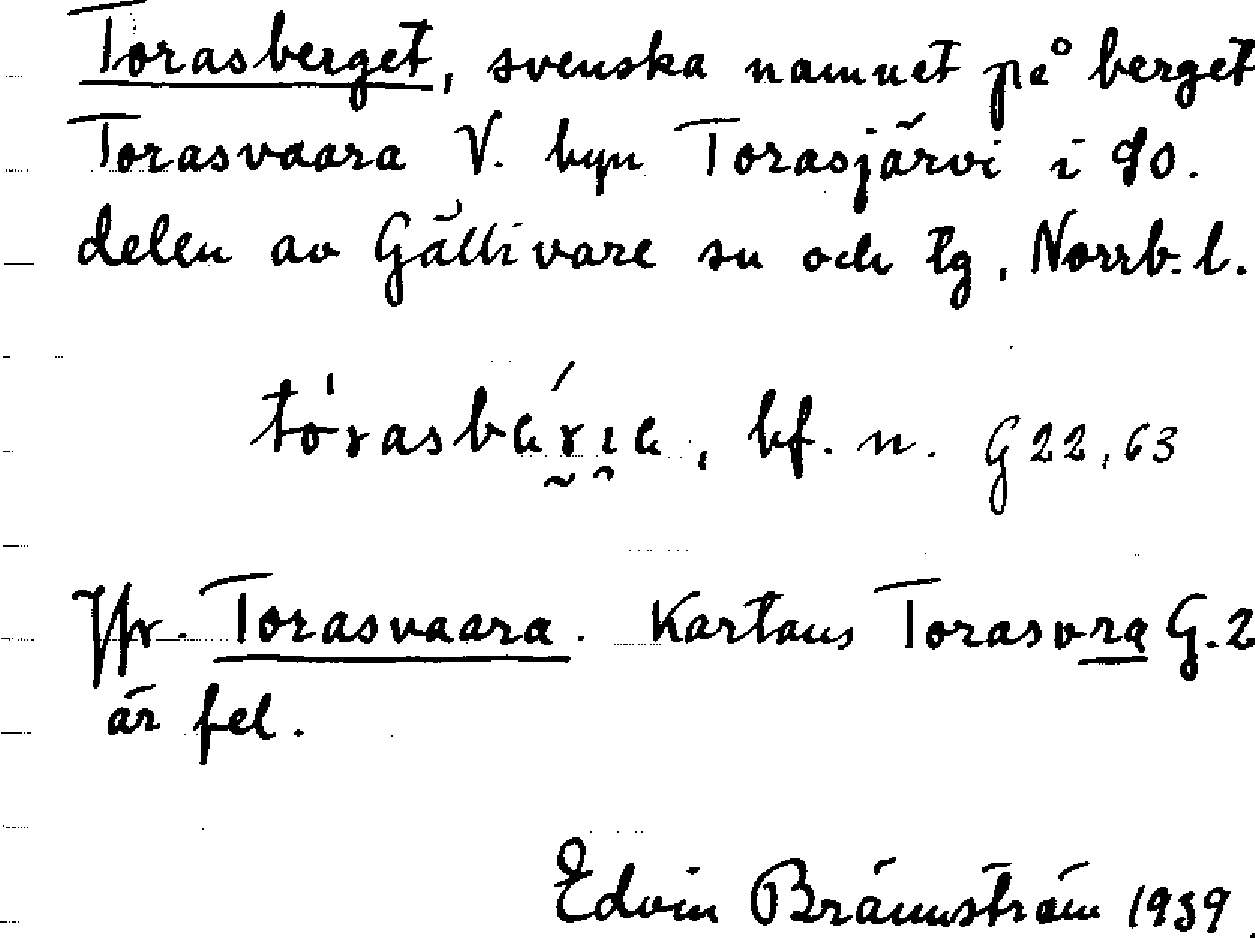 Torasberget, svenska namnet på berget
Torasvaara V. byn Torasjärvi i SO.
delen av Gällivare sn och tg, Norrb. l.
bf. n. G 22, 63
Jfr. Torasvaara. Kartans Torasvra G. 2
är fel.
Edvin Brännström 1939